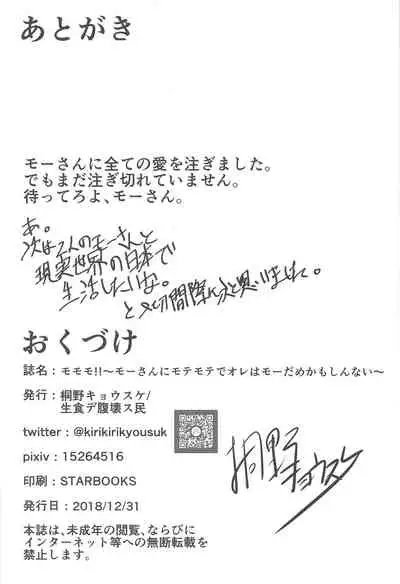 あとがき
モーさんに全ての愛を注ぎました。
でもまだ注ぎ切れていません。
待ってろよ、モーさん。
あ。
次は2人のモーさんと
現実世界の日本で
生活したいな。
と〆切間際に思いました。
おくづけ
誌名:モモモ!!~モーさんにモテモテでオレはモーだめかもしんない~
発行:桐野キョウスケ/
生食デ腹壊ス民
twitter:@kirikirikyousuk
pixiv:15264516
印刷:STARBOOKS
発行日:2018/12/31
桐野キョウスケ
本誌は、未成年の閲覧、ならびに
インターネット等への無断転載を
禁止します。